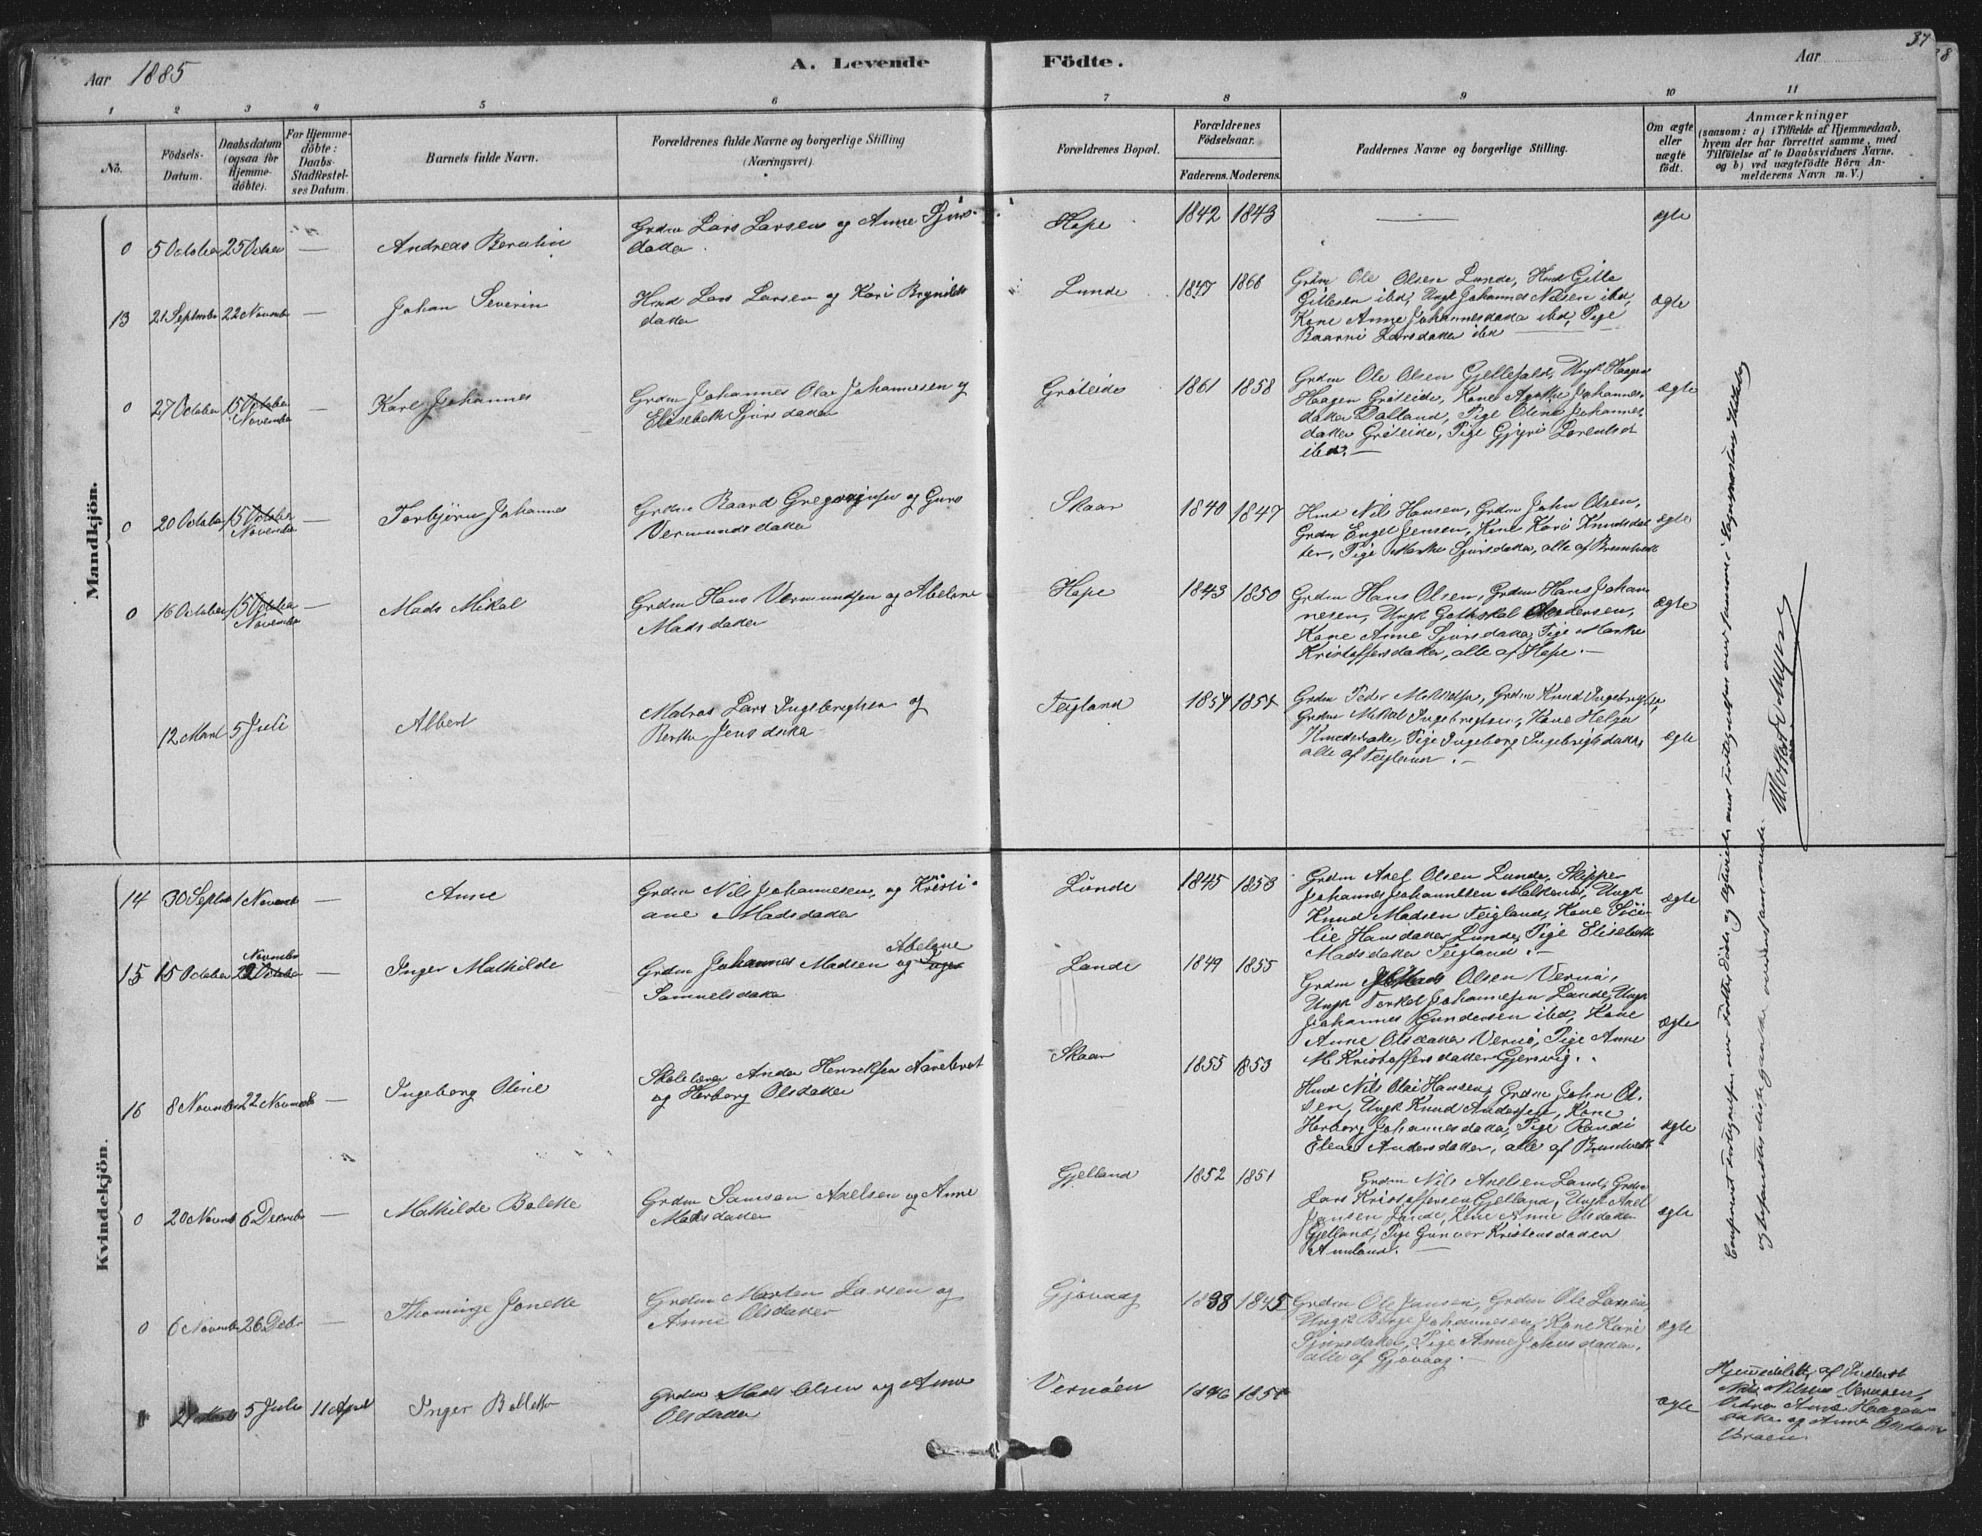 Aar 1885
A. Levende
Födte.
Aar
37
1 2 3 4 5 6 7 8 9 10 11
No.
Födsels-Datum.
Daabsdatum (ogsaa for Hjemme-döbte).
For Hjemme-döbte: Daabs-Stadfæstel-ses Datum.
Barnets fulde Navn.
Forældrenes fulde Navne og borgerlige Stilling (Næringsvei).
Forældrenes Bopæl.
Forældrenes Födselsaar.
Faderens. Moderens.
Faddernes Navne og borgerlige Stilling.
Om ægte eller uægte födt.
Anmærkninger
(saasom: a) i Tilfælde af Hjemmedaab, hvem der har forrettet samme, med Tilföielse af to Daabsvidners Navne, og b) ved uægtefödte Börn An-melderens Navn m. V.)
Mandkjön.
0 5 October 25 October — Andreas Berentin
Grdm Lars Larsen og Anne Sjurs-
datter
Hope 1842 1843 — ægte
13 21 September 22 November — Johan Severin
Hmd Lars Larsen og Kari Brynilds
datter
Lunde 1847 1866
Grdm Ole Olsen Lunde, Hmd Gitle
Gitlesen ibd, Ungk Johannes Nilsen ibd,
Kone Anne Johannesdatter ibd, Pige
Baarni Larsdatter ibd
ægte
0 27 October 15 October November — Karl Johannes
Grdm Johannes Olai Johannesen og
Elisebeth Sjursdatter
Gröteide 1861 1858
Grdm Ole Olsen Gjellefald, Ungk Haagen
Haagen Gröteide, Kone Agathe Johannes-
datter Dalland, Pige Oline Johannes-
datter Gröteide, Pige Gjyri Lorentsdt
ibd. —
ægte
0 20 October 15 October November — Torbjørn Johannes
Grdm Baard Gregoriusen og Guro
Vermundsdatter
Skaar 1840 1847
Hmd Nils Hansen, Grdm John Olsen,
Grdm Engel Jensen, Kone Kari Knudsdat
ter, Pige Marthe Sjursdatter, alle af
ægte
0 16 October 15 October November — Mads Mikal
Grdm Hans Vermundsen og Abelone
Madsdatter
Hope 1843 1850
Grdm Hans Olsen, Grdm Hans Johan
nesen, Ungk Gothskal Andersen,
Kone Anne Sjursdatter, Pige Marthe
Kristoffersdatter, alle af Hope. —
ægte
12 Marts 5 Juli Albert
Matros Lars Ingebrigtsen og
Berthe Jensdatter
Teigland 1854 1854
Grdm Peder, Grdm Knud Ingebrigtsen,
Grdm Mikkel Ingebrigtsen, Kone Helga
Knudsdatter, Pige Ingeborg Ingebrigtsdatter
alle af Teigland. —
ægte
Kvindekjön.
14 30 Septbr 1 Novemb — Anne
Grdm Nils Johannesen, og Kristi-
ane Madsdatter
Lunde 1845 1853
Grdm Axel Olsen Lunde, Skipper
Johannes Johannesen, Ungk
Knud Madsen Teigland, Kone Sici-
lie Hansdatter Lunde, Pige Elisebeth
Madsdatter Teigland. —
ægte
15 15 October November October — Inger Mathilde
Grdm Johannes Madsen og Abelone
Samuelsdatter
Lunde 1849 1855
Grdm Mads Olsen Vernö,
Ungk Torkel Johannesen Lunde, Ungk
Johannes Gundersen ibd, Kone
Anne Olsdatter Vernö, Pige Anne
M. Kristoffersdatter Gjersvig.
ægte
16 8 November 22 November — Ingeborg Oline
Skolelærer Anders Henriksen
og Herborg Olsdatter
Skaar 1855 1853
Hmd Nils Olai Hansen, Grdm John Ol-
sen, Ungk Knud Andersen, Kone
Herborg Johannesdatter, Pige Randi
Elene Andersdatter, alle af
ægte
0 20 Novemb 6 December — Mathilde Bolette
Grdm Samson Axelsen og Anne
Madsdatter
Gjelland 1852 1851
Grdm Nils Axelsen Lande, Grdm
Lars Kristoffersen Gjelland, Ungk Axel
Jensen Lande, Kone Anne Olsdatter
Gjelland, Pige Gunvor Kristensdatter
ægte
0 6 November 26 Debr Thominge Jonette
Grdm Morten Larsen og
Anne Olsdatter
Gjövaag 1838 1845
Grdm Ole Jansen, Grdm Ole Larsen
Ungk Berge Johannesen, Kone Kari
Sjursdatter, Pige Anne Johnsdatter,
alle af Gjövaag. —
ægte
5 Julie 11 April Inger Bolette
Grdm Mads Olsen og Anne
Olsdatter
Vernöen 1846
ægte
Hjemmedöbt af
Nils Nilsen Vernöen,
Vidner Anne Haagens
datter og Anne Olsdatter